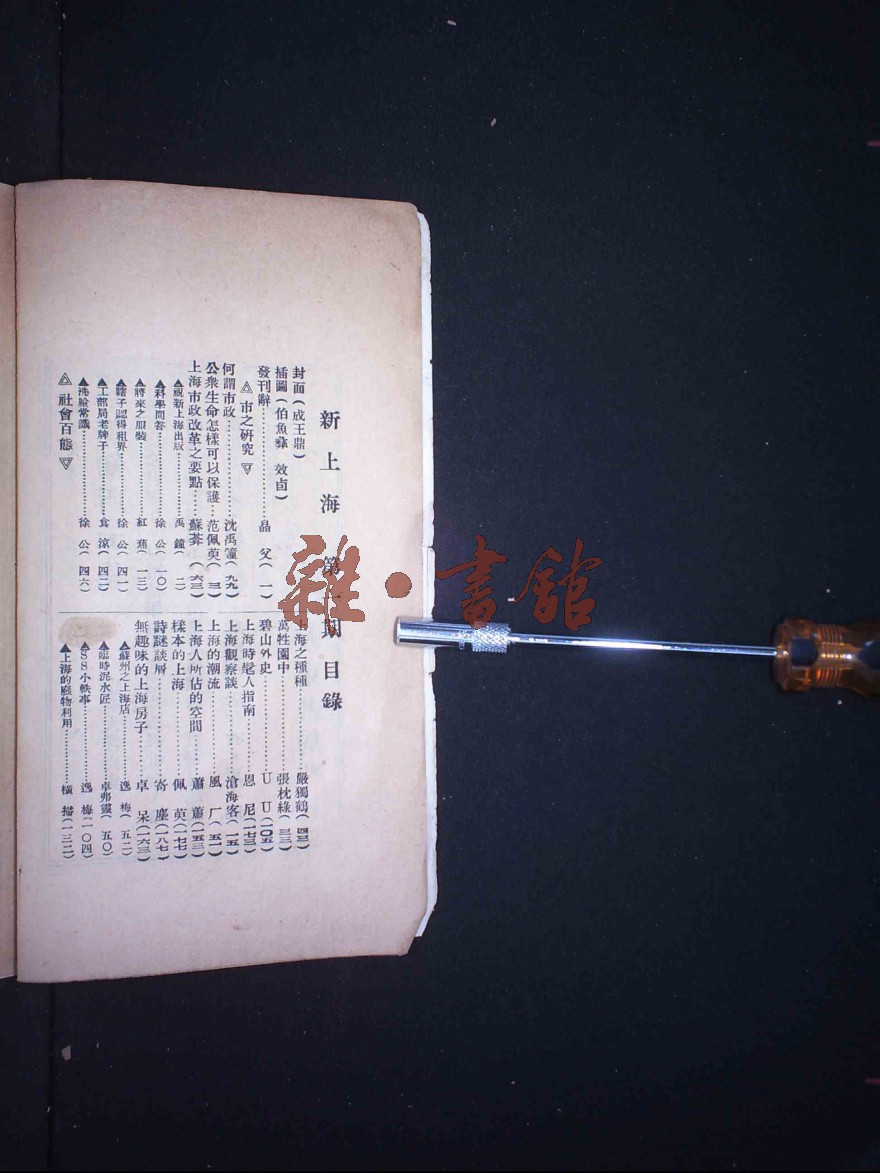 新上海 第一期目錄
封面(成王鼎)
插圖(伯魚彝 效卣)
發刊辭………晶父(一)
△市之研究▽
何謂市政………沈禹鐘(九九)
公衆生命怎樣可以保護…范佩萸
上海市政改革之要點……蘇莽
▲祝新上海出版………禹鐘(二)
▲科學問答………徐公(一〇)
▲將來之服裝………紅蕉(一三)
▲瞎子認得租界………徐公(四一)
▲工部局老牌子………食涼(四二)
▲洗臉常識………徐公(四六)
△社會百態▽
上海之種種………嚴獨鶴
萬牲園中………張枕綠
碧山外史………UU(一〇五)
上海時髦人指南………恩尼(一七三)
上海觀察談………滄海客(一五)
上海的潮流………風厂(五一)
上海人所佔的空間………蕭蕭(一五三)
樣本的上海………佩萸(一七七)
詩謎談屑………寄塵(一八七)
無趣味的上海房子………卓呆(一六三)
▲蘇州之上海店………逸梅(五二)
▲臨時泥水匠………卓弗靈(五〇)
▲SS小軼事………逸梅(一〇四)
▲上海的廢物利用………橫掃(一三二)
雜·書館